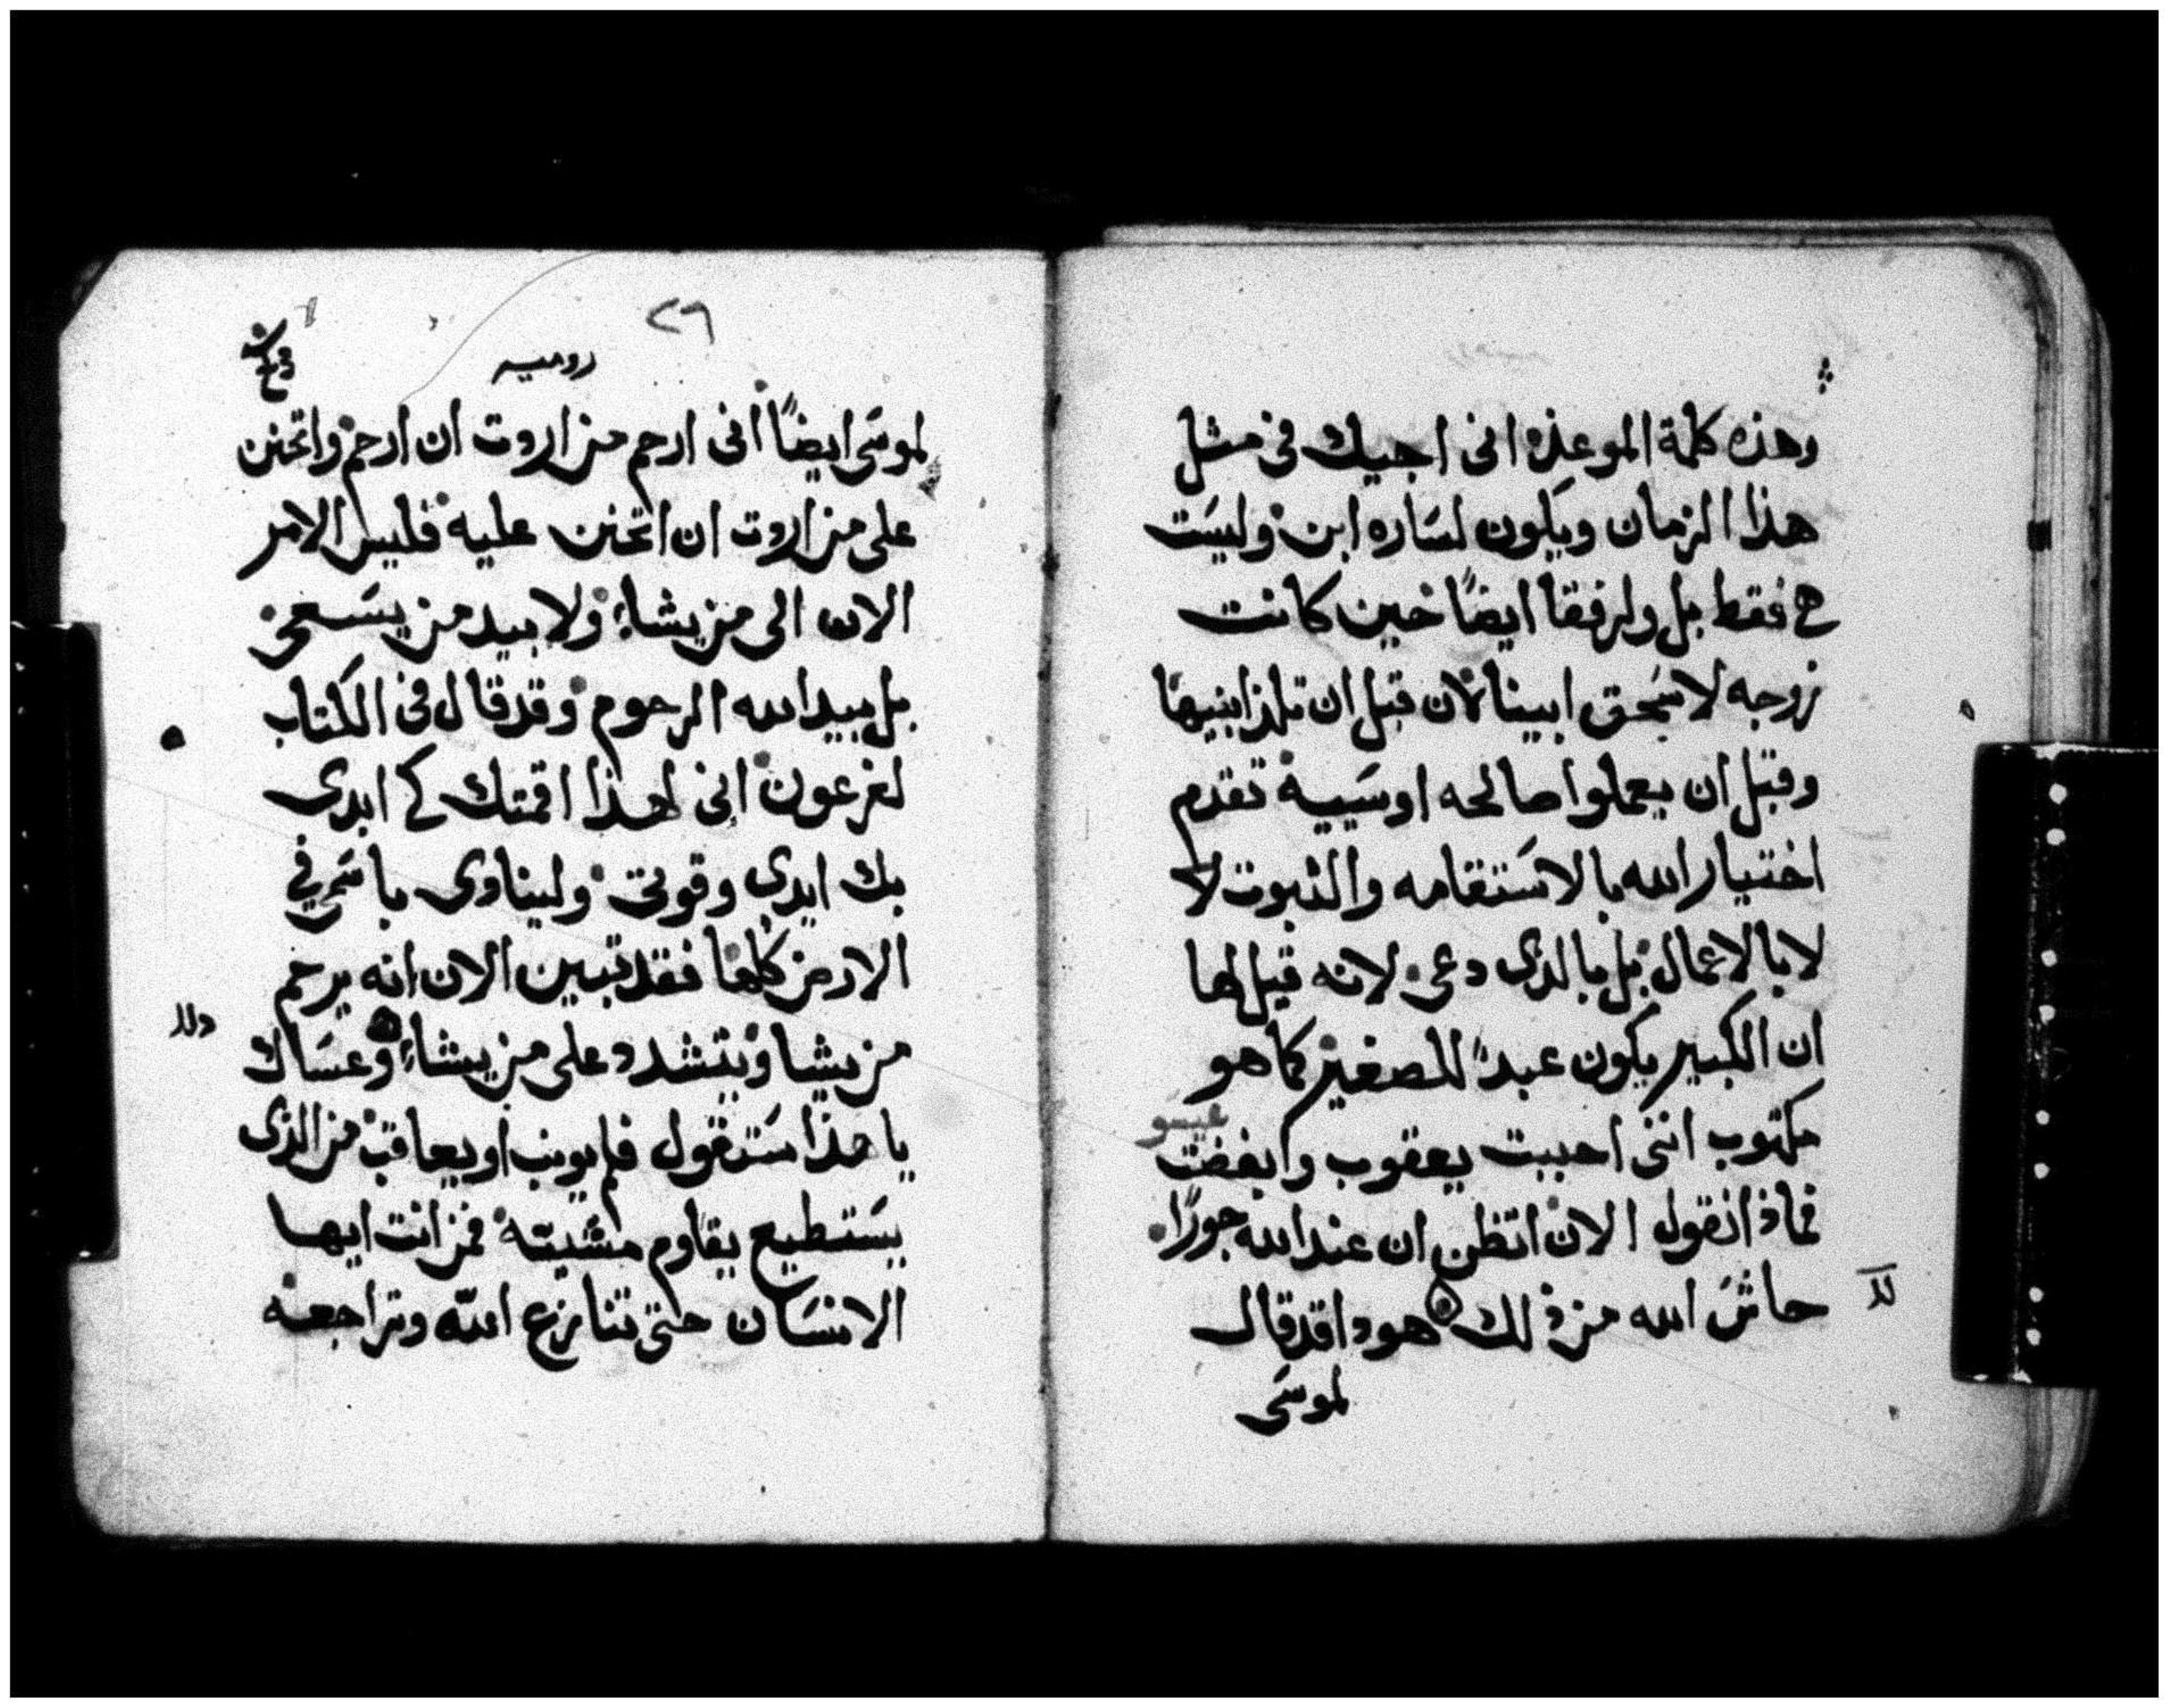 وهذه كلمة الموعذه انى اجيك فى مثل
هذا الزمان ويكون لساره ابن وليست
هى فقط بل ولرفقا ايضًا حين كانت
زوجه لاسحق ابينا لان قبل ان تلد ابنيها
وقبل ان يعملوا صالحه او سييه تقدم
اختيار الله بالاستقامه والثبوت لا
لا بالاعمال بل بالذى دعى لانه قيل لها
ان الكبير يكون عبدًا للصغير كما هو
مكتوب اننى احببت يعقوب وابغضت عيسو
فماذا نقول الان اتظن ان عند الله جورًا
حاش الله من ذلك هودا قد قال
لموسى
٢٦
روميه
لموسى ايضًا انى ارحم من اردت ان ارحم واتحنن
على من اردت ان اتحنن عليه فليس الامر
الان الى من يشاء ولا بيد من يسعى
بل بيد الله الرحوم وقد قال فى الكتاب
لفرعون انى لهذا اقمتك كى ابدى
بك ايدى وقوتى ولينادى باسمى فى
الارض كلها فقد تبين الان انه يرحم
من يشا ويتشدد على من يشاء وعساك
يا هذا ستقول فلم يونب او يعاقب من الذى
يستطيع يقاوم مشيته فمن انت ايها
الانسان حتى تنازع الله وتراجعه